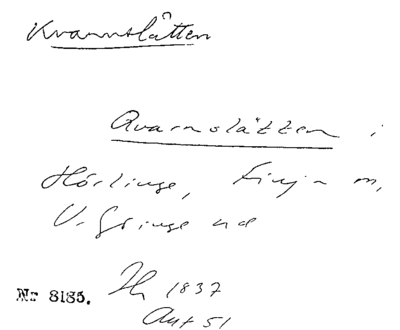 Kvarnslätten
Qvarnslätten i
Hörlinge, Finja m,
V. Göinge hd
Nr 8185. Th 1837
Aut 51